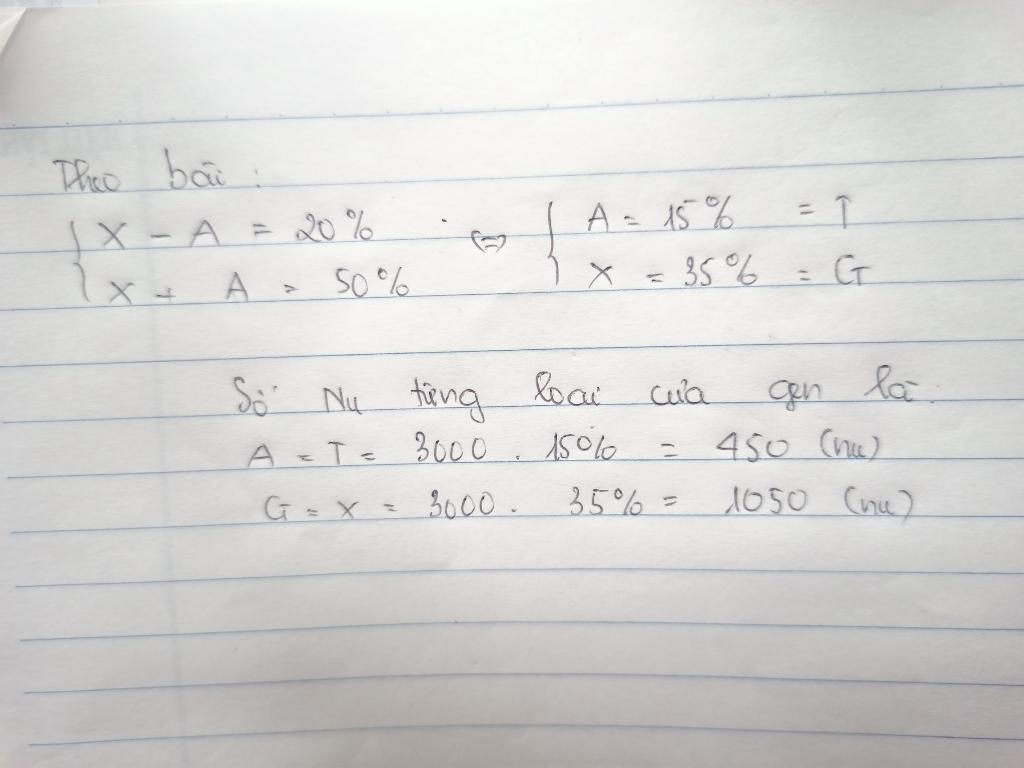 Theo bài :
{ X - A = 20% <=> { A = 15% = T
X + A = 50% X = 35% = G
Số Nu từng loại của gen là.
A = T = 3000 . 15% = 450 (nu)
G = X = 3000 . 35% = 1050 (nu)